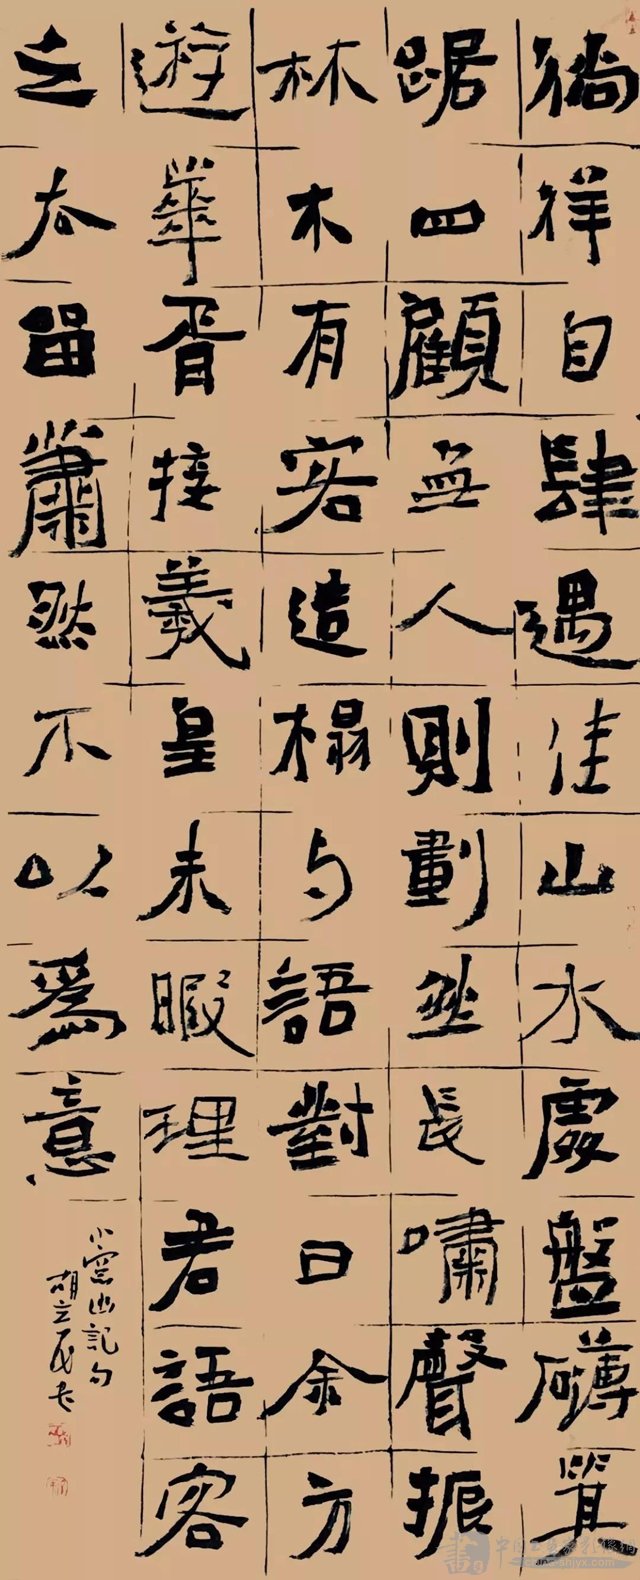 徜徉自肆遇佳山水處盤礴箕
踞四顧無人則劃然長嘯聲振
林木有客造榻与語對曰余方
遊華胥接羲皇未暇理君語客
之去留蕭然不以為意
小窗幽記句